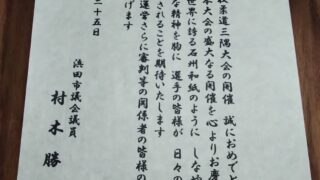 柔道三隅大会の開催 誠におめでと
大会の盛大なる開催を心よりお慶
世界に誇る石州和紙のように しな
な精神を胸に 選手の皆様が 日々の
されることを期待いたします
運営さらに審判等の関係者の皆様の
げます
二十五日
浜田市議会議員
村木 勝